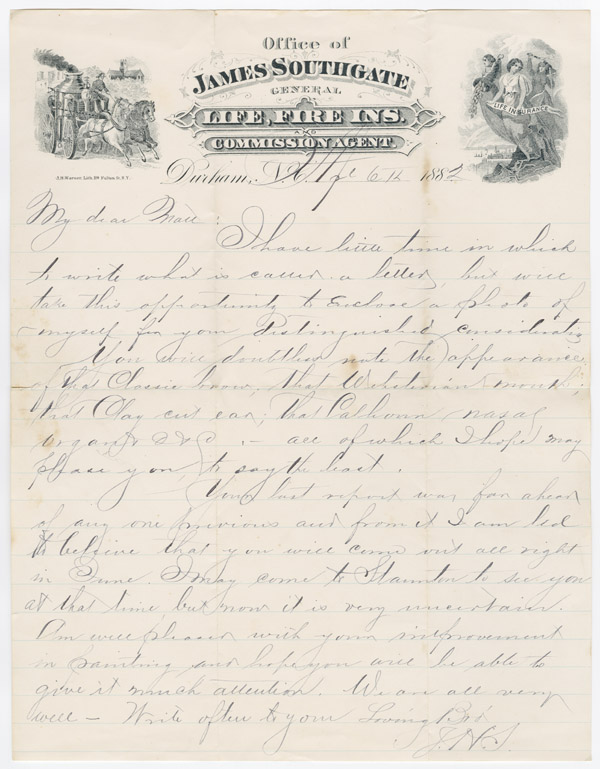 Office of
JAMES SOUTHGATE
GENERAL
LIFE, FIRE INS.
AND
COMMISSION AGENT.
LIFE INSURANCE
Durham, N.C. 6th 1882
My dear Matt:
I have little time in which
to write what is called a letter, but will
take this opportunity to Enclose a photo of
myself for your Distinguished consideration
You will doubtless note the appearance
of that Classic brow; that Websterian mouth;
that Clay cut ear; that Calhoun nasal
organ &c &c :- all of which I hope may
please you, to say the least.
Your last report was far ahead
of any one previous and from it I am led
to believe that you will come out all right
in June. I may come to Staunton to see you
at that time but now it is very uncertain.
Am well pleased with your improvement
in painting and hope you will be able to
give it much attention. We are all very
well - Write often to your Loving Bro
J.H.S.